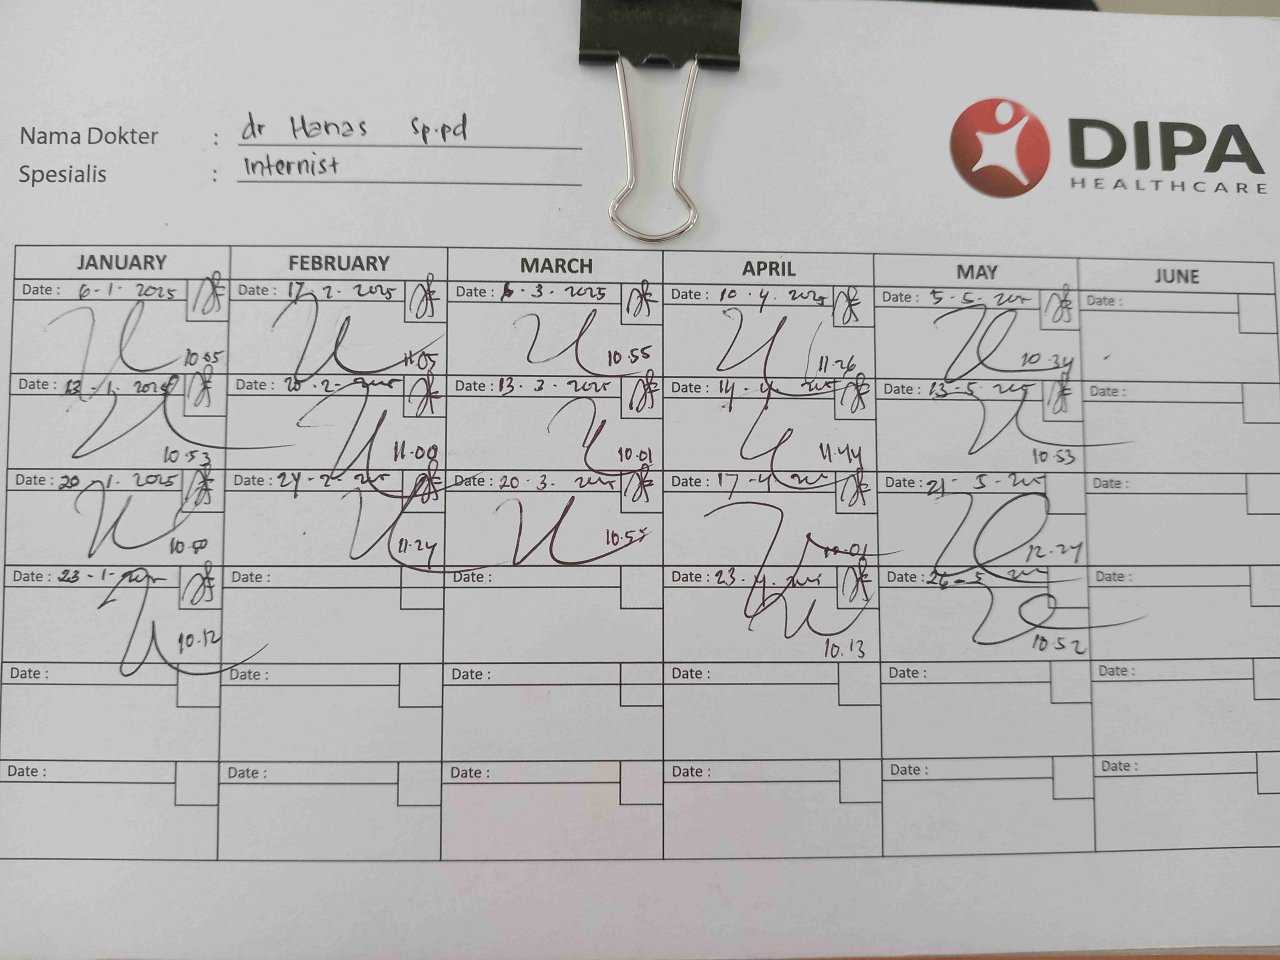 Nama Dokter : dr Hanas Sp.pd
Spesialis : Internist
DIPA
HEALTHCARE
JANUARY FEBRUARY MARCH APRIL MAY JUNE
Date : 6-1-2025 Date : 17-2-2025 Date : 6-3-2025 Date : 10-4-2025 Date : 5-5-2025 Date :
10.55 11.26 10.34
Date : 13-1-2025 Date : 20-2-2025 Date : 13-3-2025 Date : 14-4-2025 Date : 13-5-2025 Date :
10.53 11.00 10.01 11.44 10.53
Date : 20-1-2025 Date : 24-2-2025 Date : 20-3-2025 Date : 17-4-2025 Date : 21-5-2025 Date :
11.24 12.24
Date : 23-1-2025 Date : Date : Date : 23-4-2025 Date : 26-5-2025 Date :
10.12 10.13 10.52
Date : Date : Date : Date : Date : Date :
Date : Date : Date : Date : Date : Date :